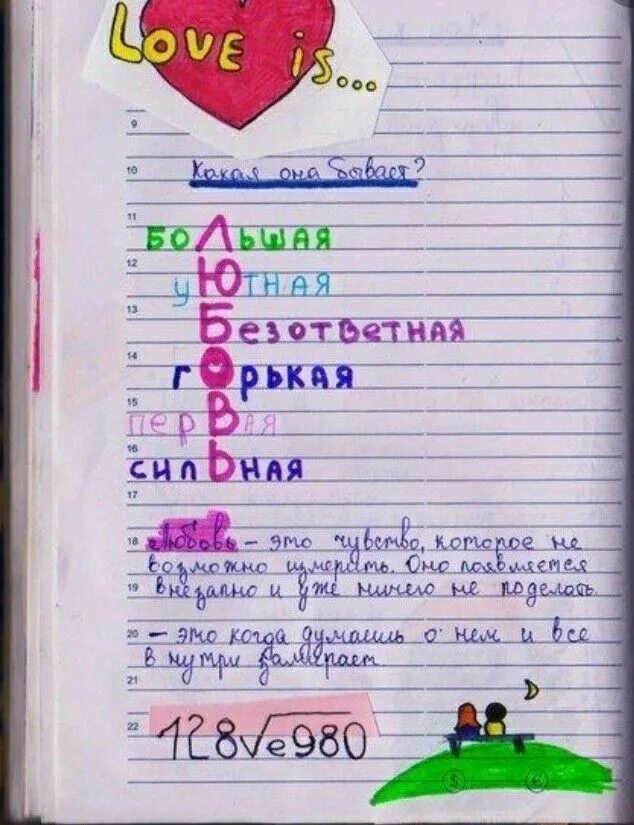 LOVE is...
9
10 Какая она бывает?
11 БОЛЬШАЯ
12 уЮТНАЯ
13 Безответная
14 гОрькая
15 перВая
16 силЬная
17
18 Любовь – это чувство, которое не
возможно измерить. Оно появляется
19 внезапно и уже ничего не поделать.
20 – это когда думаешь о нем и все
в нутри замирает
21
22 128√e980